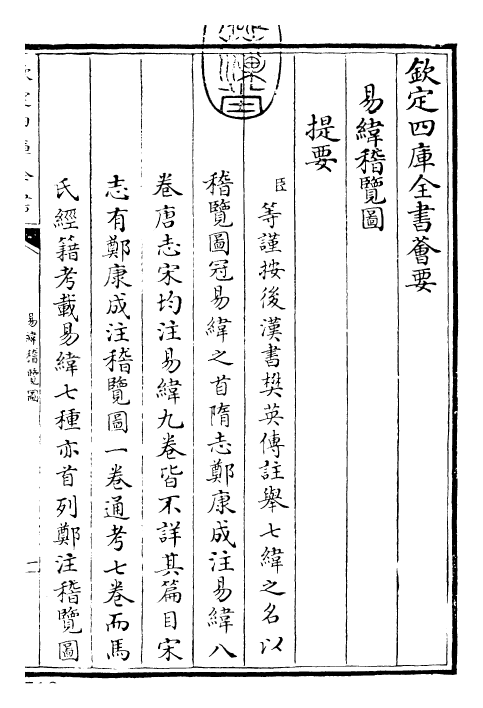 欽定四庫全書薈要
易緯稽覽圖
提要
臣等謹按後漢書樊英傳註舉七緯之名以
稽覽圖冠易緯之首隋志鄭康成注易緯八
卷唐志宋均注易緯九卷皆不詳其篇目宋
志有鄭康成注稽覽圖一卷通考七卷而馬
氏經籍考載易緯七種亦首列鄭注稽覽圖
易緯稽覽圖
一